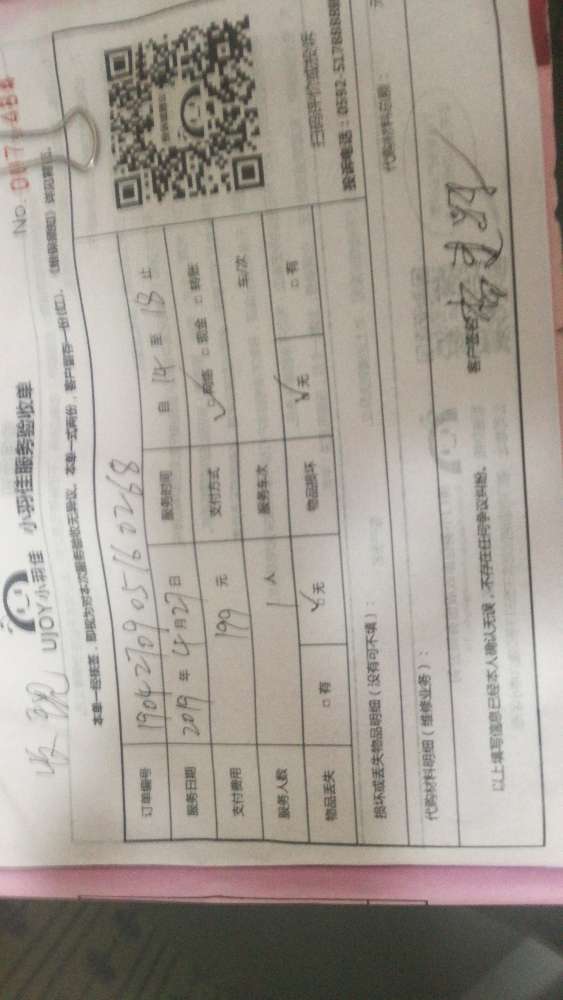 UJOY小羽佳 小羽佳服务验收单
No.
本单一经签签，即视为对本次服务验收无异议。本单一式两份，客户留存一份(红)。
订单编号 1904270905160268
服务日期 2019 年 4 月 27 日 服务时间 自 14 至 18 止
支付费用 199 元 支付方式 ✓网络 □ 现金 □ 转账
服务人数 1 人 服务车次 车/次
物品丢失 □ 有 ✓无 物品损坏 ✓无 □ 有
扫码评价或投诉
投诉电话：0592-5178888
损坏或丢失物品明细（没有可不填）：
代购材料明细（维修业务）： 代购材料总额： 元
以上填写信息已经本人确认无误，不存在任何争议纠纷。 客户签名